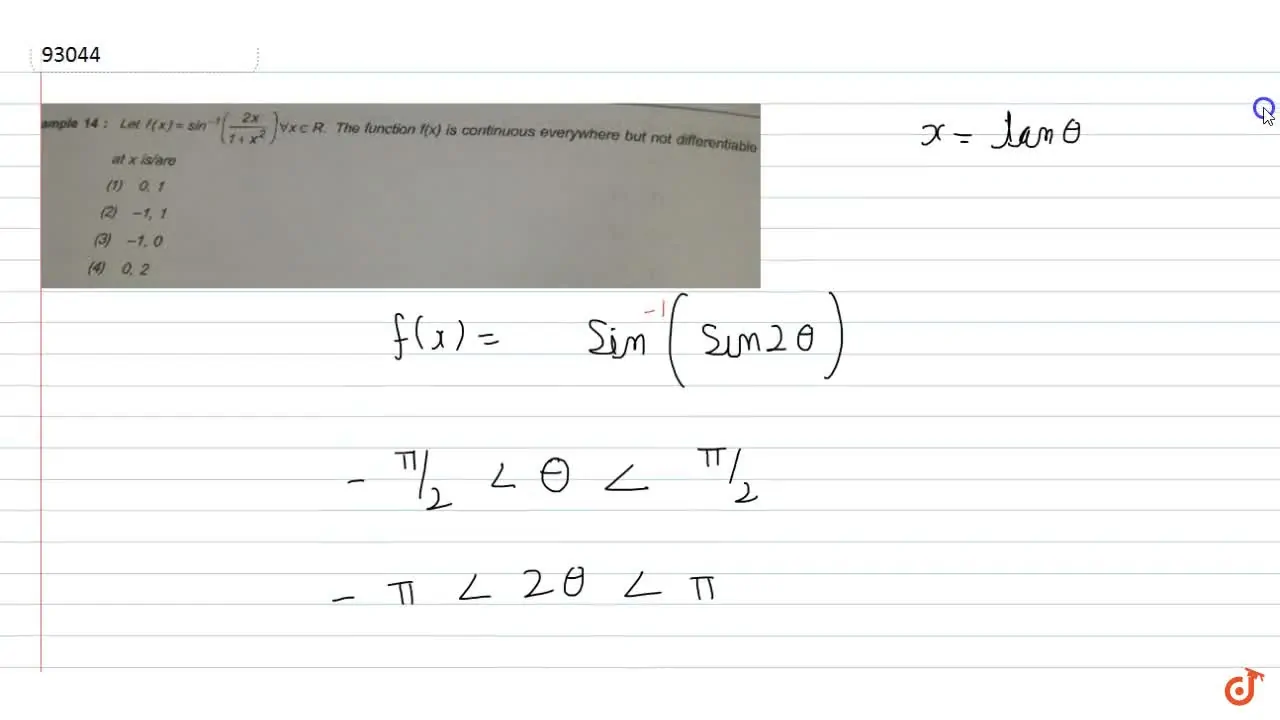 93044
ample 14 : Let f(x) = sin⁻¹(2x/1+x²) ∀x ⊂ R. The function f(x) is continuous everywhere but not differentiable
at x is/are
(1) 0, 1
(2) –1, 1
(3) –1, 0
(4) 0, 2
x = tanθ
f(x) = Sin⁻¹(Sin2θ)
- π/2 < θ < π/2
- π < 2θ < π